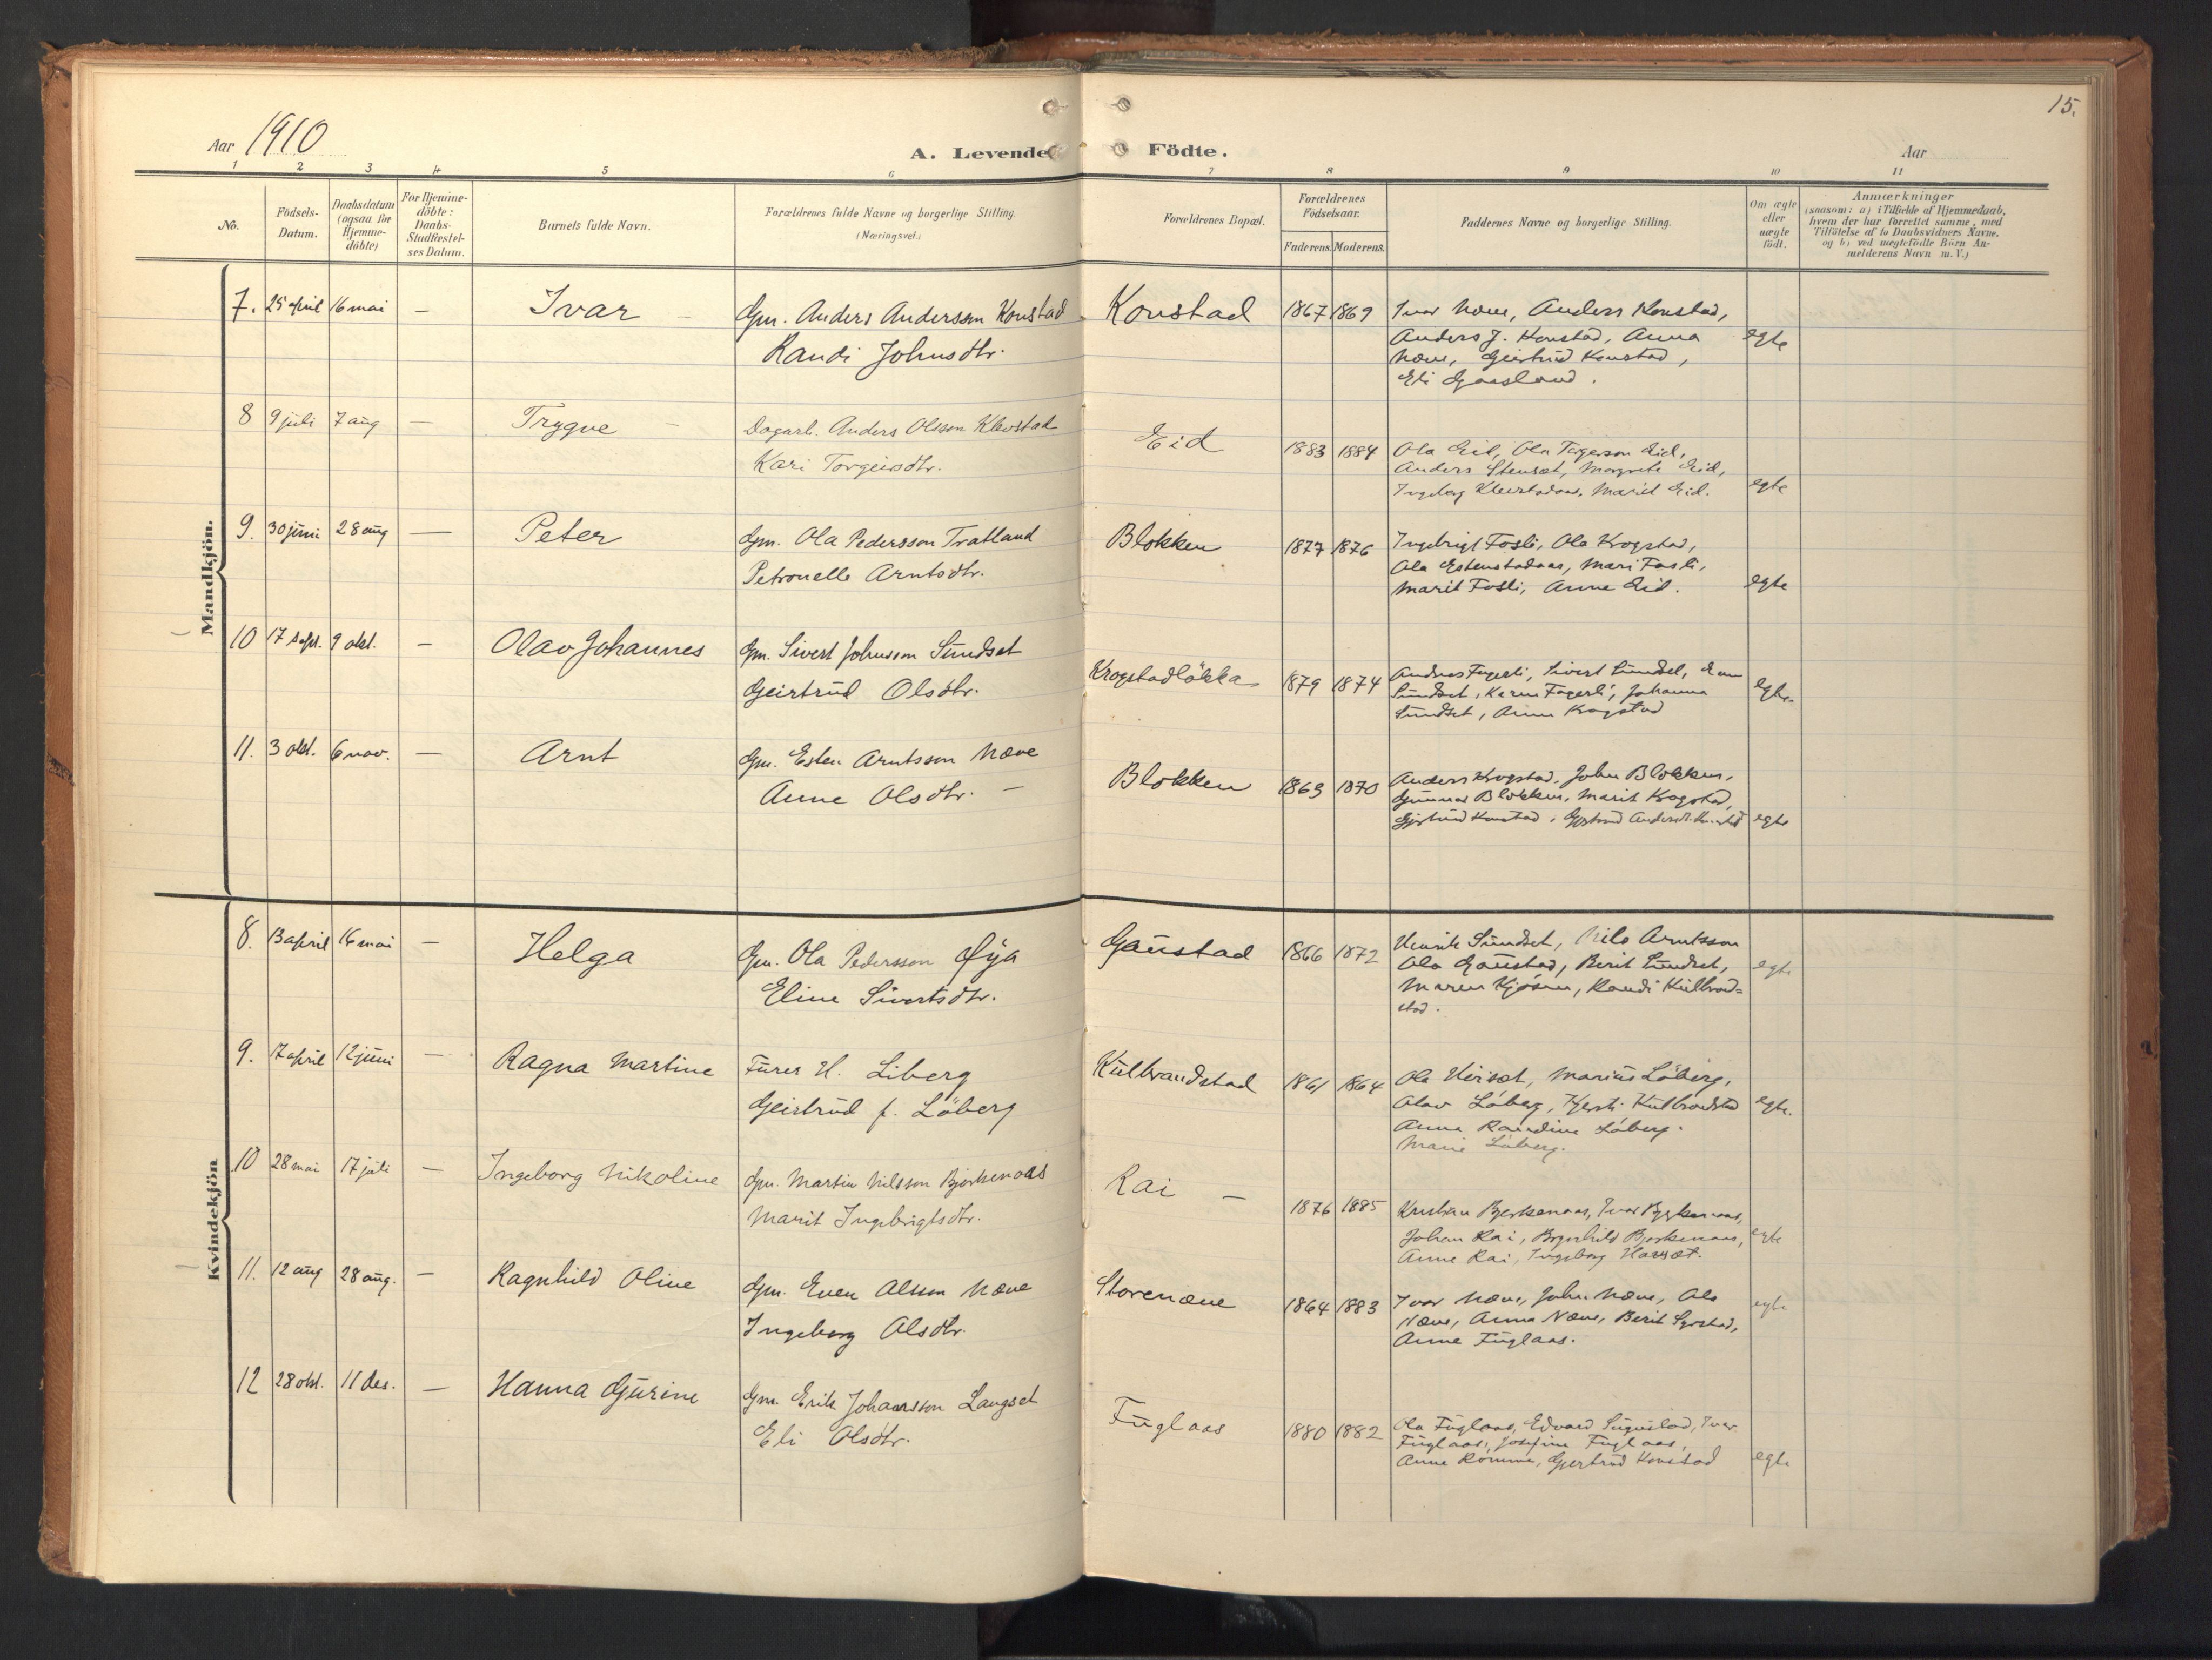 15.
Aar 1910
A. Levende Födte.
Aar
1 2 3 4 5 6 7 8 9 10 11
No.
Födsels-
Datum.
Daabsdatum
(ogsaa for
Hjemme-
döbte)
For Hjemme-
döbte:
Daabs-
Stadfæstel-
ses Datum.
Barnets fulde Navn.
Forældrenes fulde Navne og borgerlige Stilling.
(Næringsvei.)
Forældrenes Bopæl.
Forældrenes
Födselsaar.
Faderens. Moderens.
Faddernes Navne og borgerlige Stilling.
Om ægte
eller
uægte
födt.
Anmærkninger
(saasom: a) i Tilfælde af Hjemmedaab,
hvem der har forrettet samme, med
Tilföielse af to Daabsvidners Navne,
og b) ved uægtefödte Börn An-
melderens Navn m.V.)
Mandkjön.
7. 25 april 16 mai — Ivar — Gm. Anders Andersson Konstad
Randi Johnsdtr.
Konstad 1867 1869 Ivar Næve, Anders Konstad,
Anders J. Konstad, Anna
Næve, Geirtrud Konstad,
Eli Gaasland.
egte
8 9 juli 7 aug — Trygve — Dagarb. Anders Olsson Klevstad
Kari Torgeirsdtr.
Eid 1883 1884 Ola Eid, Ola Torgerson Eid,
Anders Stenset, Margrete Eid,
Ingeborg Marit Eid.
egte
9. 30 juni 28 aug — Peter Gm. Ola Pedersson Tratland
Petronelle Arntsdtr.
Blokken 1877 1876 Ingebrigt Fosli, Ola Krogstad,
Ola Estenstadaas, Mari Fosli,
Marit Fosli, Anne Eid.
egte
10 17 sept. 9 okt. — Olav Johannes Gm. Sivert Johnsson Sundset
Geirtrud Olsdtr.
Krogstadlökka 1879 1874 Andreas Fagerli, Sivert Sundset,
Sundset, Karen Fagerli, Johanna
Sundset, Anne Krogstad
egte.
11. 3 okt. 6 nov. — Arnt Gm. Esten Arntsson Næve
Anne Olsdtr. —
Blokken 1863 1870 Anders Krogstad, John Blokken,
Gunnar Blokken, Marit Krogstad,
Gjertrud Konstad, Gjertrud
egte
Kvindekjön
8. 13 april 16 mai — Helga Gm. Ola Pedersson Øya
Eline Sivertsdtr.
Gaustad 1866 1872 Henrik Sundset, Nils Arntsson
Ola Gaustad, Berit Sundset,
Maren Kjøsen, Randi Kulbrand=
stad.
egte
9. 17 april 12 juni — Ragna Martine Furer H. Liberg
Geirtrud f. Löberg
Kulbrandstad 1861 1864 Ola Heiset, Marius Löberg,
Olav Löberg, Kjersti Kulbrandstad
Anne Randine Löberg.
Marie Löberg.
egte.
10 28 mai 17 juli — Ingeborg Nikoline Gm. Martin Nilsson Bjørkenaas
Marit Ingebrigtsdtr.
Rai — 1876 1885 Kristian Bjerkenaas, Ivar Bjerkenaas,
Johan Rai, Brynhild Bjørkenaas,
Anne Rai, Ingeborg Harsæt.
egte
11. 12 aug 28 aug. — Ragnhild Oline Gm. Even Olsson Næve
Ingeborg Olsdtr.
Storenæve 1864 1883 Ivar Næve, John Næve, Ola
Næve, Anna Næve, Berit
Anne Fuglaas.
egte
12 28 okt. 11 des. — Hanna Gjurine Gm. Erik Johansson Langset
Eli Olsdtr.
Fuglaas 1880 1882 Ola Fuglaas, Edvard Ivar
Fuglaas, Josefine Fuglaas,
Anne Romme, Gjertrud Konstad
egte